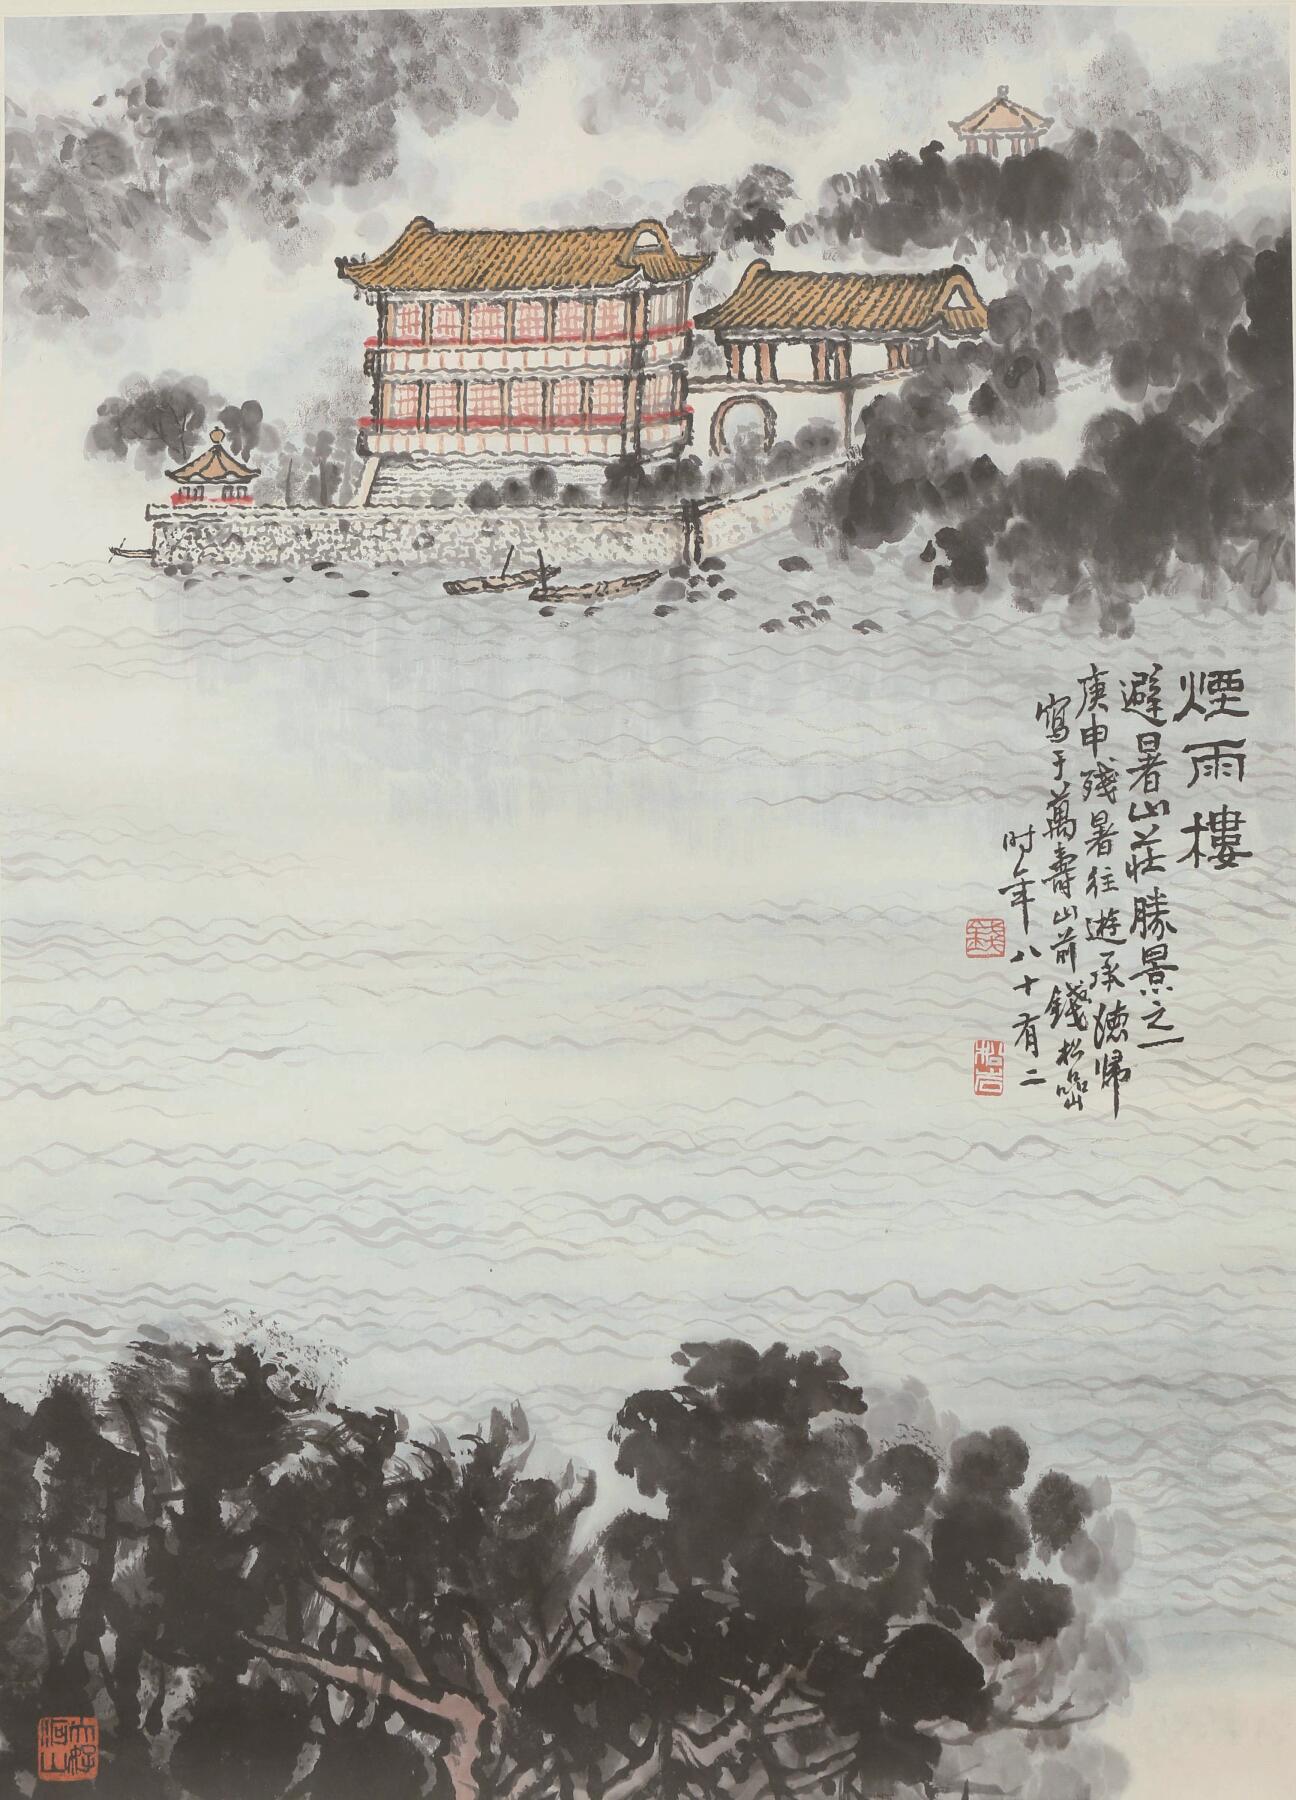 煙雨樓
避暑山莊勝景之一
庚申殘暑往遊承德歸
寫于萬壽山前錢松嵒
时年八十有二
錢
松嵒
大好河山